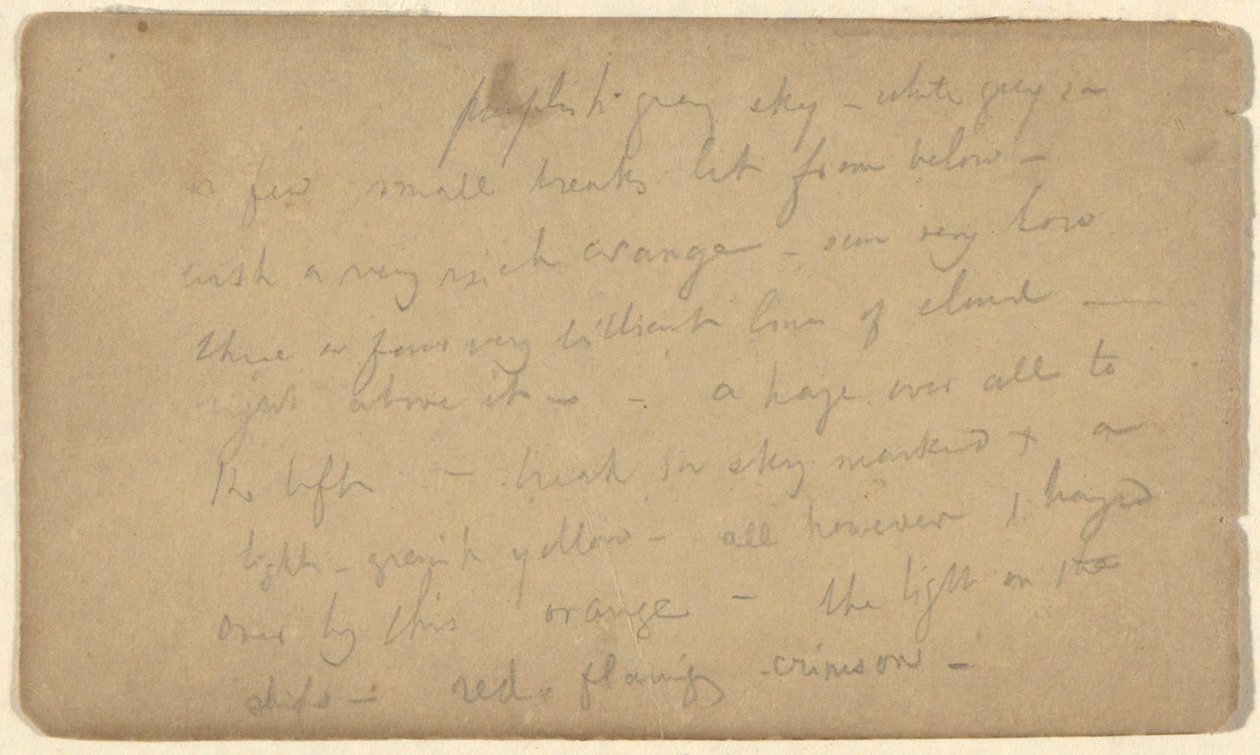 purplish gray sky – white grey in
a few small breaks lit from below –
with a very rich orange – sun very low
there a few very brilliant lines of cloud –
right above it – – a haze over all to
the left – break in sky marked + a
light – greenish yellow – all however hazed
over by this orange – the light on the
ships – red – flaming crimson –